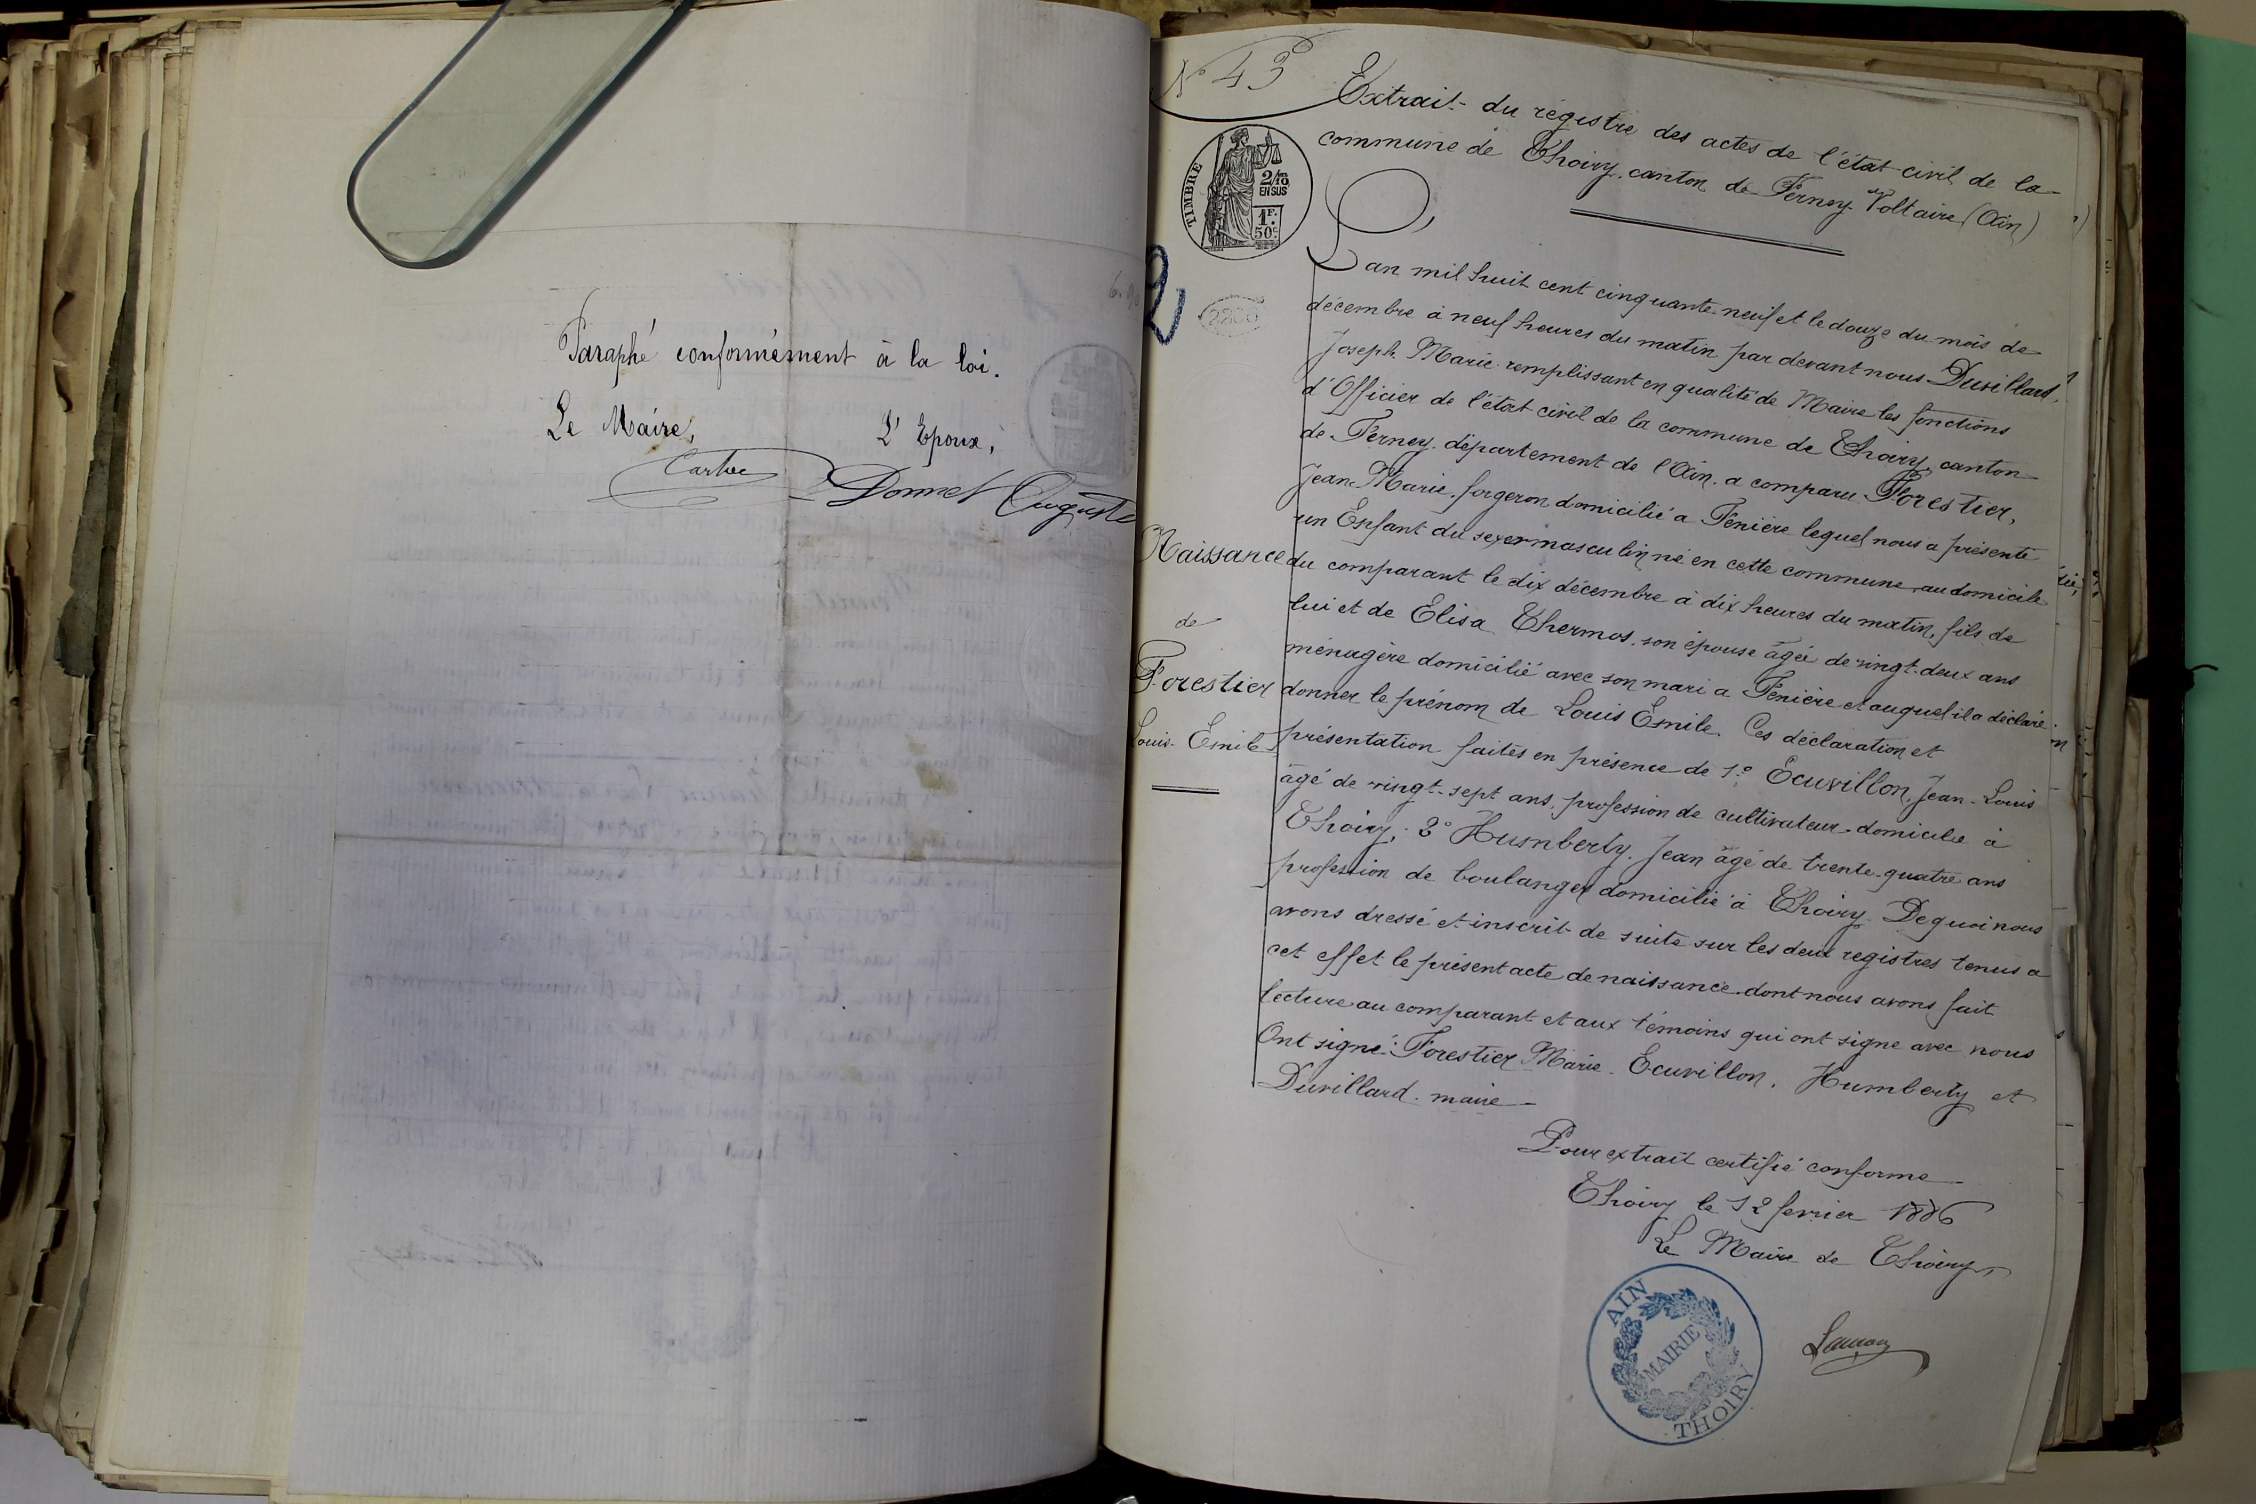 Paraphé conformément à la loi.
Le Maire,
L'Epoux,
Donnet Auguste
N° 43
Extrait du régistre des actes de l'état civil de la
commune de Thoiry, canton de Ferney-Voltaire (Ain)
TIMBRE
2/10
EN SUS
1F.
50c.
2
L'an mil huit cent cinquante-neuf et le douze du mois de
décembre à neuf heures du matin par devant nous Duvillard,
Joseph Marie remplissant en qualité de Maire les fonctions
d'Officier de l'état civil de la commune de Thoiry, canton
de Ferney, département de l'Ain. a comparu Forestier,
Jean-Marie, forgeron domicilié a Fenière lequel nous a présenté
un Enfant du sexe masculin né en cette commune, au domicile
Naissance
du comparant le dix décembre à dix heures du matin, fils de
de
lui et de Elisa Thermos, son épouse âgée de vingt-deux ans
ménagère domicilié avec son mari a Fenière et auquel il a déclaré
Forestier
donner le prénom de Louis Emile. Ces déclaration et
Louis-Emile
présentation faites en présence de 1° Ecuvillon, Jean-Louis
âgé de vingt-sept ans, profession de cultivateur domicilié à
Thoiry; 2° Humberty, Jean âgé de trente-quatre ans
profession de boulanger domicilié à Thoiry. De quoi nous
avons dressé et inscrit de suite sur les deux registres tenus a
cet effet le présent acte de naissance, dont nous avons fait
lecture au comparant et aux témoins qui ont signé avec nous
Ont signé: Forestier Marie. Ecuvillon, Humberty et
Duvillard. maire
Pour extrait certifié conforme
Thoiry le 12 fevrier 1886
Le Maire de Thoiry,
AIN
MAIRIE
THOIRY